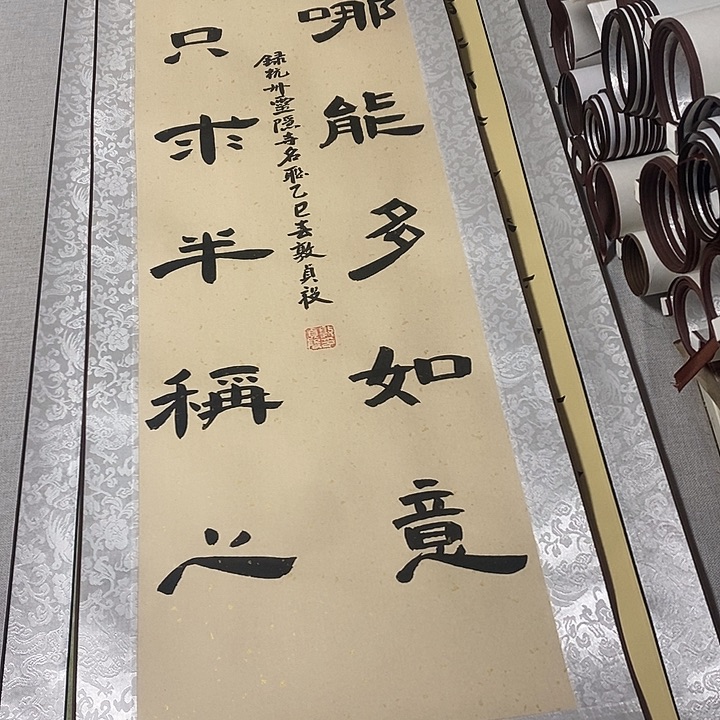 哪能多如意
只求半稱心
錄杭州靈隱寺名聯乙巳春敦貞毅